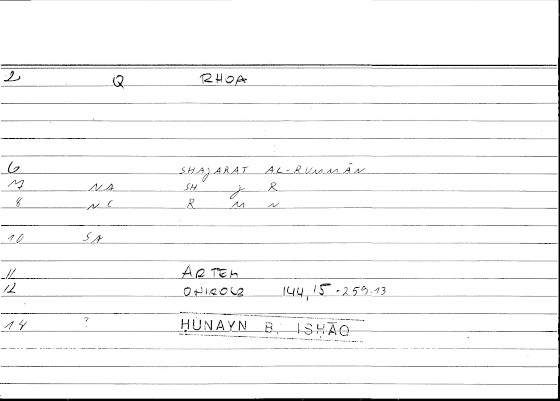 2 Q RHOA
6 SHAJARAT AL-RUMMĀN
7 NA SH J R
8 NC R M N
10 SA
11 ARTEM
12 ONIROCR 144,15-259.13
14 ? ḤUNAYN B. ISḤĀQ